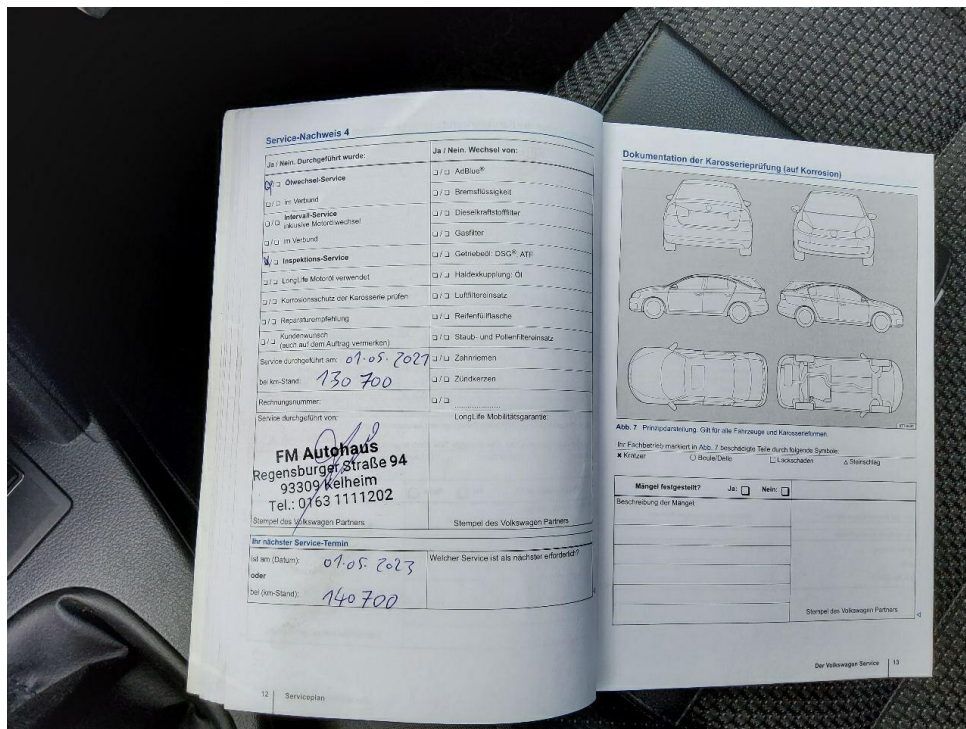 Service-Nachweis 4
Ja / Nein. Durchgeführt wurde:
Ölwechsel-Service
im Verbund
Intervall-Service
inklusive Motorölwechsel
im Verbund
Inspektions-Service
LongLife Motoröl verwendet
Korrosionsschutz der Karosserie prüfen
Reparaturempfehlung
Kundenwunsch
(auch auf dem Auftrag vermerken)
Service durchgeführt am: 01.05.2021
bei km-Stand: 130 700
Rechnungsnummer:
Service durchgeführt von:
FM Autohaus
Regensburger Straße 94
93309 Kelheim
Tel.: 0163 1111202
Stempel des Volkswagen Partners
Ja / Nein. Wechsel von:
AdBlue®
Bremsflüssigkeit
Dieselkraftstofffilter
Gasfilter
Getriebeöl: DSG®, ATF
Haldexkupplung: Öl
Luftfiltereinsatz
Reifenfüllflasche
Staub- und Pollenfiltereinsatz
Zahnriemen
Zündkerzen
LongLife Mobilitätsgarantie:
Stempel des Volkswagen Partners
Ihr nächster Service-Termin
ist am (Datum): 01.05.2023
oder
bei (km-Stand): 140 700
Welcher Service ist als nächster erforderlich?
12 Serviceplan
Dokumentation der Karosserieprüfung (auf Korrosion)
Abb. 7 Prinzipdarstellung: Gilt für alle Fahrzeuge und Karosserieformen
Ihr Fachbetrieb markiert in Abb. 7 beschädigte Teile durch folgende Symbole:
x Kratzer ○ Beule/Delle □ Lackschaden △ Steinschlag
Mängel festgestellt? Ja: Nein:
Beschreibung der Mängel
Stempel des Volkswagen Partners
Der Volkswagen Service 13